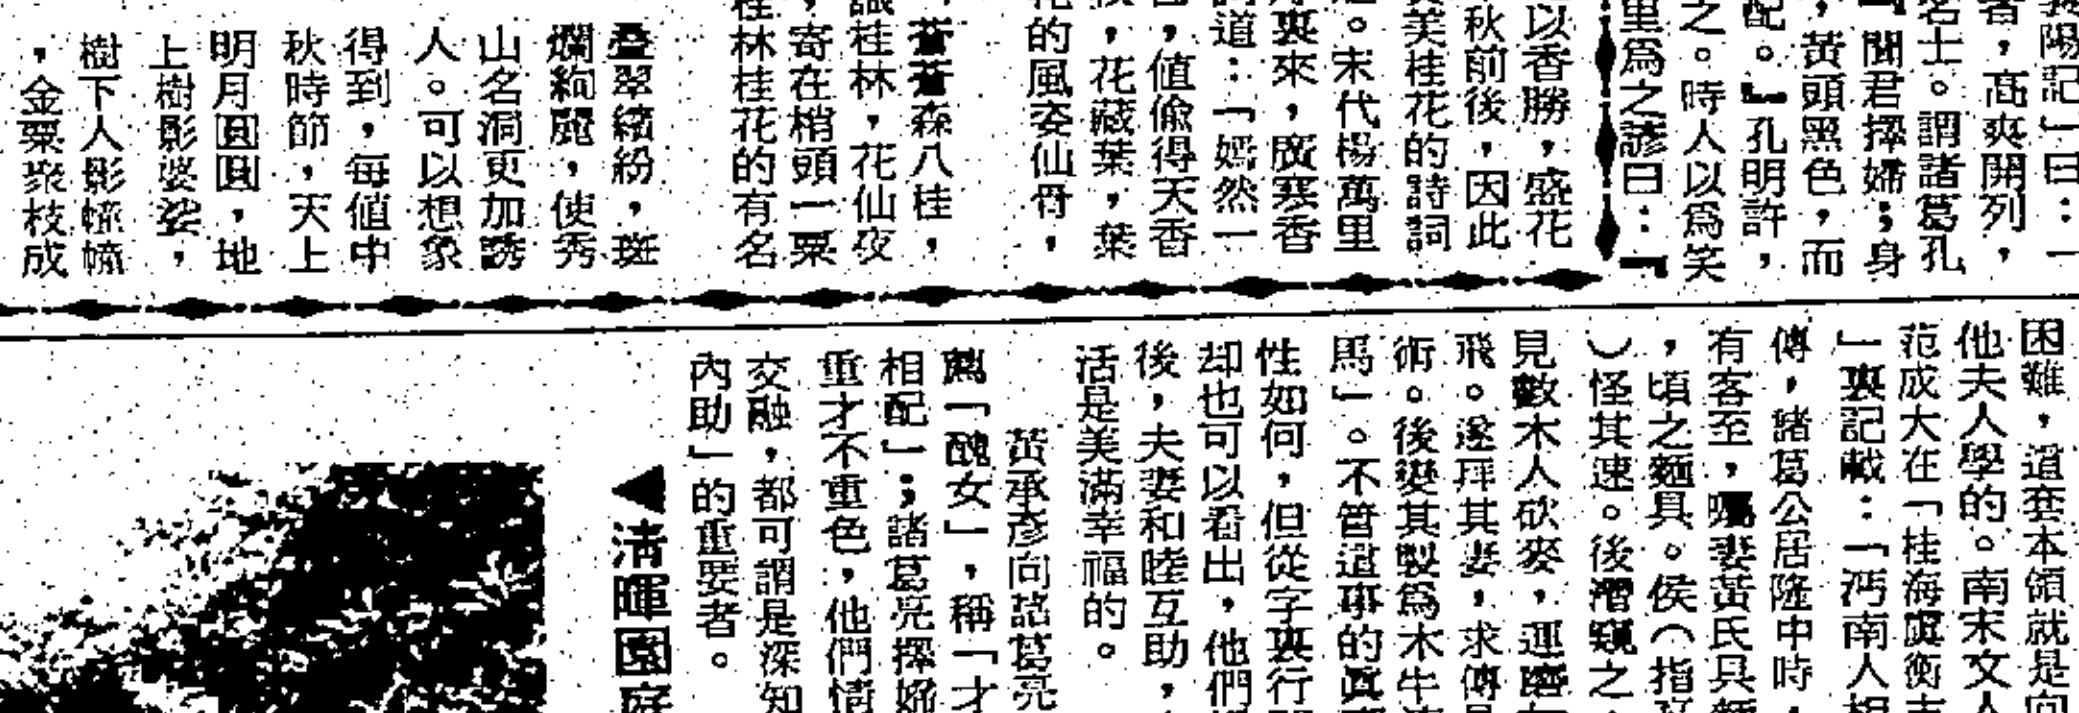 襄陽記」曰：一
者，高爽開列，
名士。謂諸葛孔
『聞君擇婦；身
，黃頭黑色，而
配。』孔明許，
之。時人以爲笑
里爲之諺曰：『
以香勝，盛花
秋前後，因此
美桂花的詩詞
。宋代楊萬里
裏來，廣寒香
道：「嫣然一
，值偷得天香
，花藏葉，葉
的風姿仙骨，
，蒼蒼森八桂，
識桂林，花仙夜
，寄在梢頭一粟
桂林桂花的有名
疊翠繽紛，斑
爛絢麗，使秀
山名洞更加誘
人。可以想象
得到，每値中
秋時節，天上
明月圓圓，地
上樹影婆娑，
樹下人影幢幢
，金粟聚枝成
困難，這套本領就是向
他夫人學的。南宋文人
范成大在「桂海虞衡志
」裏記載：「沔南人相
傳，諸葛公居隆中時，
有客至，囑妻黃氏具麵
，頃之麵具。侯（指
）怪其速。後潛窺之，
見數木人砍麥，運磨如
飛。遂拜其妻，求傳是
術。後變其製爲木牛流
馬」。不管這事的眞
性如何，但從字裏行間
却也可以看出，他們
後，夫妻和睦互助，
活是美滿幸福的。
黃承彥向諸葛亮
薦「醜女」，稱「才
相配」；諸葛亮擇婦
重才不重色，他們情
交融，都可謂是深知
內助」的重要者。
◀清暉園庭